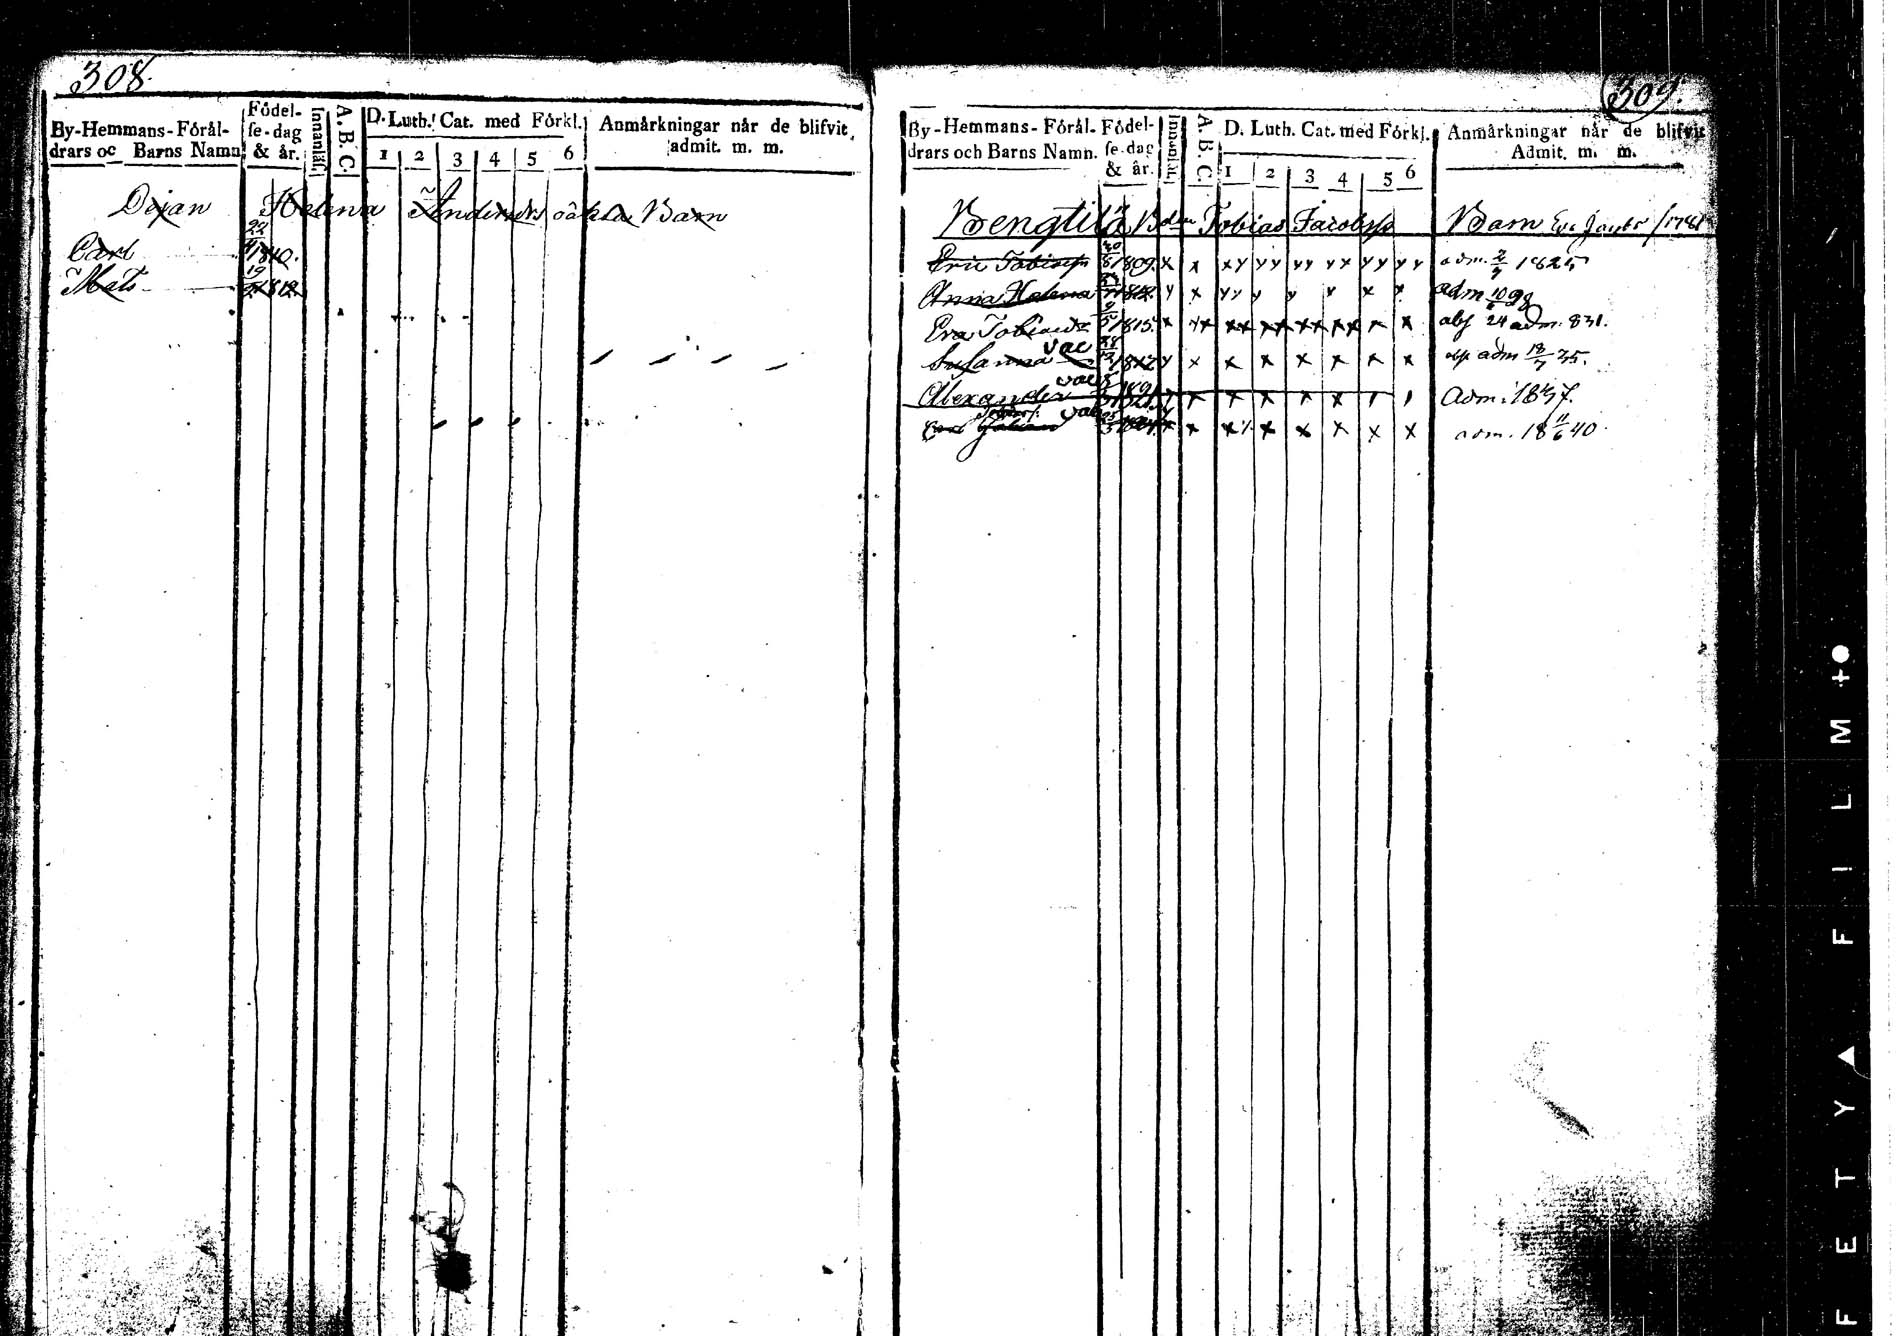 308.
By-Hemmans-Förål-
drars oc Barns Namn
Födel-
se-dag
& år.
Innanläs.
A. B. C.
D. Luth. Cat. med Förkl.
1 2 3 4 5 6
Anmårkningar når de blifvit
admit. m. m.
Dejan Helena Andersdrs oäkta Barn
Carl 22 1810.
Mats 19 1812.
309.
By-Hemmans-Förål-
drars och Barns Namn.
Födel-
se-dag
& år.
Innanläs.
A. B. C.
D. Luth. Cat. med Förkl.
1 2 3 4 5 6
Anmårkningar når de blifvit
Admit. m. m.
Bengtilä Bden Tobias Jacobss Barn
Eric Tobiess 30/8 1809. x x xy yy yy yx yy yy adm. 1825
Anna Helena adm
Eva Tobiasdr 9/5 1815. x xx xx xx xx xx x x abs 24 adm. 831.
Susanna vac 28/12 1817 y x x x x x x x abs adm 18/7 35.
Alexander vac 1821 Adm: 1837.
Carl Johan vac x x x x x x adm. 18 11/6 40.
F E T Y ▲ F I L M +●